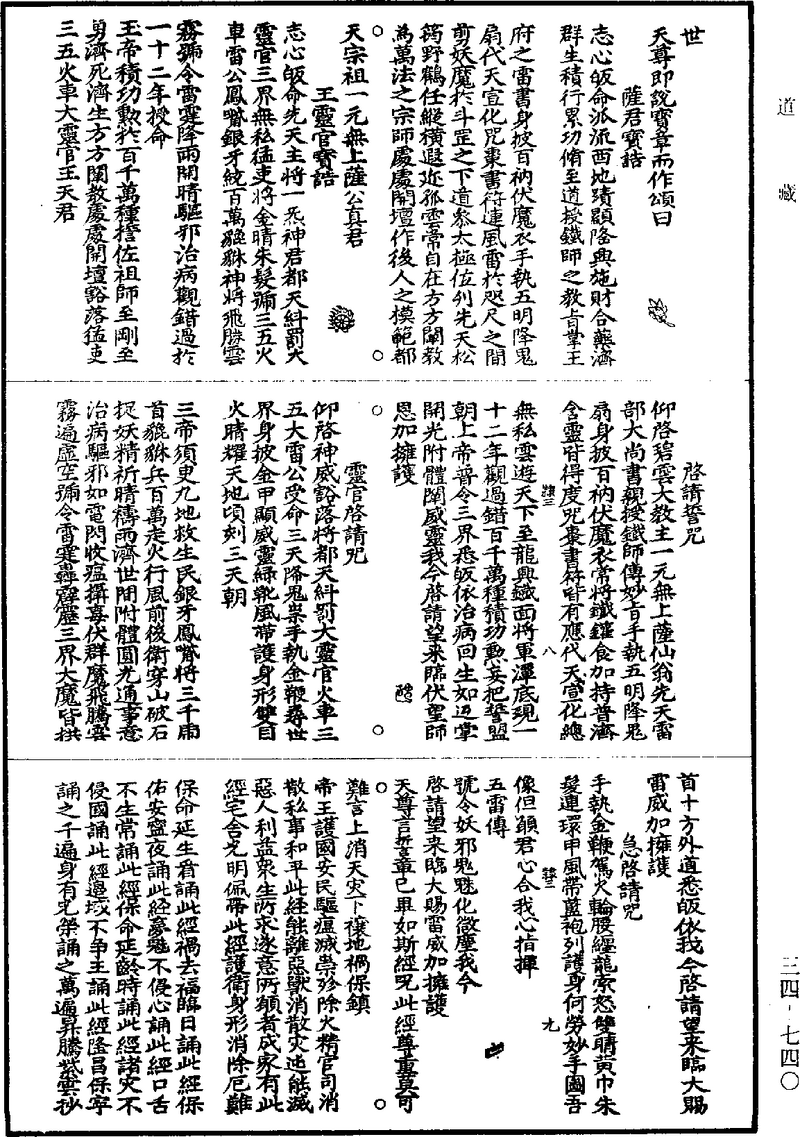 道藏
世
天尊即說寶章而作頌曰
薩君寶誥
志心皈命派流西地蹟顯隆興施財合藥濟
群生積行累功脩至道授鐵師之教旨掌玉
府之雷書身披百衲伏魔衣手執五明降鬼
扇代天宣化咒棗書符連風雷於咫尺之間
剪妖魔於斗罡之下道參太極位列先天松
筠野鶴任縱橫遐迩孤雲常自在方方闡教
為萬法之宗師處處開壇作後人之模範都
天宗祖一元無上薩公真君
王靈官寶誥
志心皈命先天主將一炁神君都天糾罰大
靈官三界無私猛吏將金睛朱髮號三五火
車雷公鳳嘴銀牙統百萬貔貅神將飛騰雲
霧號令雷霆降雨開晴驅邪治病觀錯過於
一十二年授命
玉帝積功勲於百千萬種誓佐祖師至剛至
勇濟死濟生方方闡教處處開壇豁落猛吏
三五火車大靈官王天君
啓請誓咒
仰啓碧雲大教主一元無上薩仙翁先天雷
部大尚書親授鐵師傳妙旨手執五明降鬼
扇身披百衲伏魔衣常將鐵鑵食加持普濟
含靈皆得度咒棗書符皆有應代天宣化總
無私雲遊天下至龍興鐵面將軍潭底現一
十二年觀過錯百千萬種積功勲妄把誓盟
朝上帝普令三界悉皈依治病回生如返掌
開光附體闡威靈我今啓請望來臨伏望師
恩加擁護
靈官啓請咒
仰啓神威豁落將都天糾罰大靈官火車三
五大雷公受命三天降鬼祟手執金鞭尋世
界身披金甲顯威靈綠靴風帶護身形雙目
火睛耀天地頃刻三天朝
三帝須臾九地救生民銀牙鳳嘴將三千雨
首貔貅兵百萬走火行風前後衛穿山破石
捉妖精祈晴禱雨濟世間附體圓光通事意
治病驅邪如電閃收瘟攝毒伏群魔飛騰雲
霧遍虛空號令雷霆轟霹靂三界大魔皆拱
八
首十方外道悉皈依我今啓請望來臨大賜
雷威加擁護
急啓請咒
手執金鞭駕火輪腰纏龍索怒雙睛黃巾朱
髮連環甲風帶藍袍列護身何勞妙手圖吾
像但願君心合我心指揮
五雷傳
號令妖邪鬼魅化微塵我今
啓請望來臨大賜雷威加擁護
天尊言誓章已畢如斯經咒此經尊重莫可
難言上消天灾下禳地禍保鎮
帝王護國安民驅瘟滅祟殄除火精官司消
散私事和平此經能離惡獸消散灾迍能滅
惡人利益衆生所求遂意所願者成家有此
經宅舍光明佩帶此經護衛身形消除厄難
保命延生看誦此經禍去福臨日誦此經保
佑安寧夜誦此經夢魅不侵心誦此經口舌
不生常誦此經保命延齡時誦此經諸灾不
侵國誦此經邉域不爭王誦此經隆昌保寧
誦之千遍身有光榮誦之萬遍昇騰紫雲抄
九
三四-七四〇